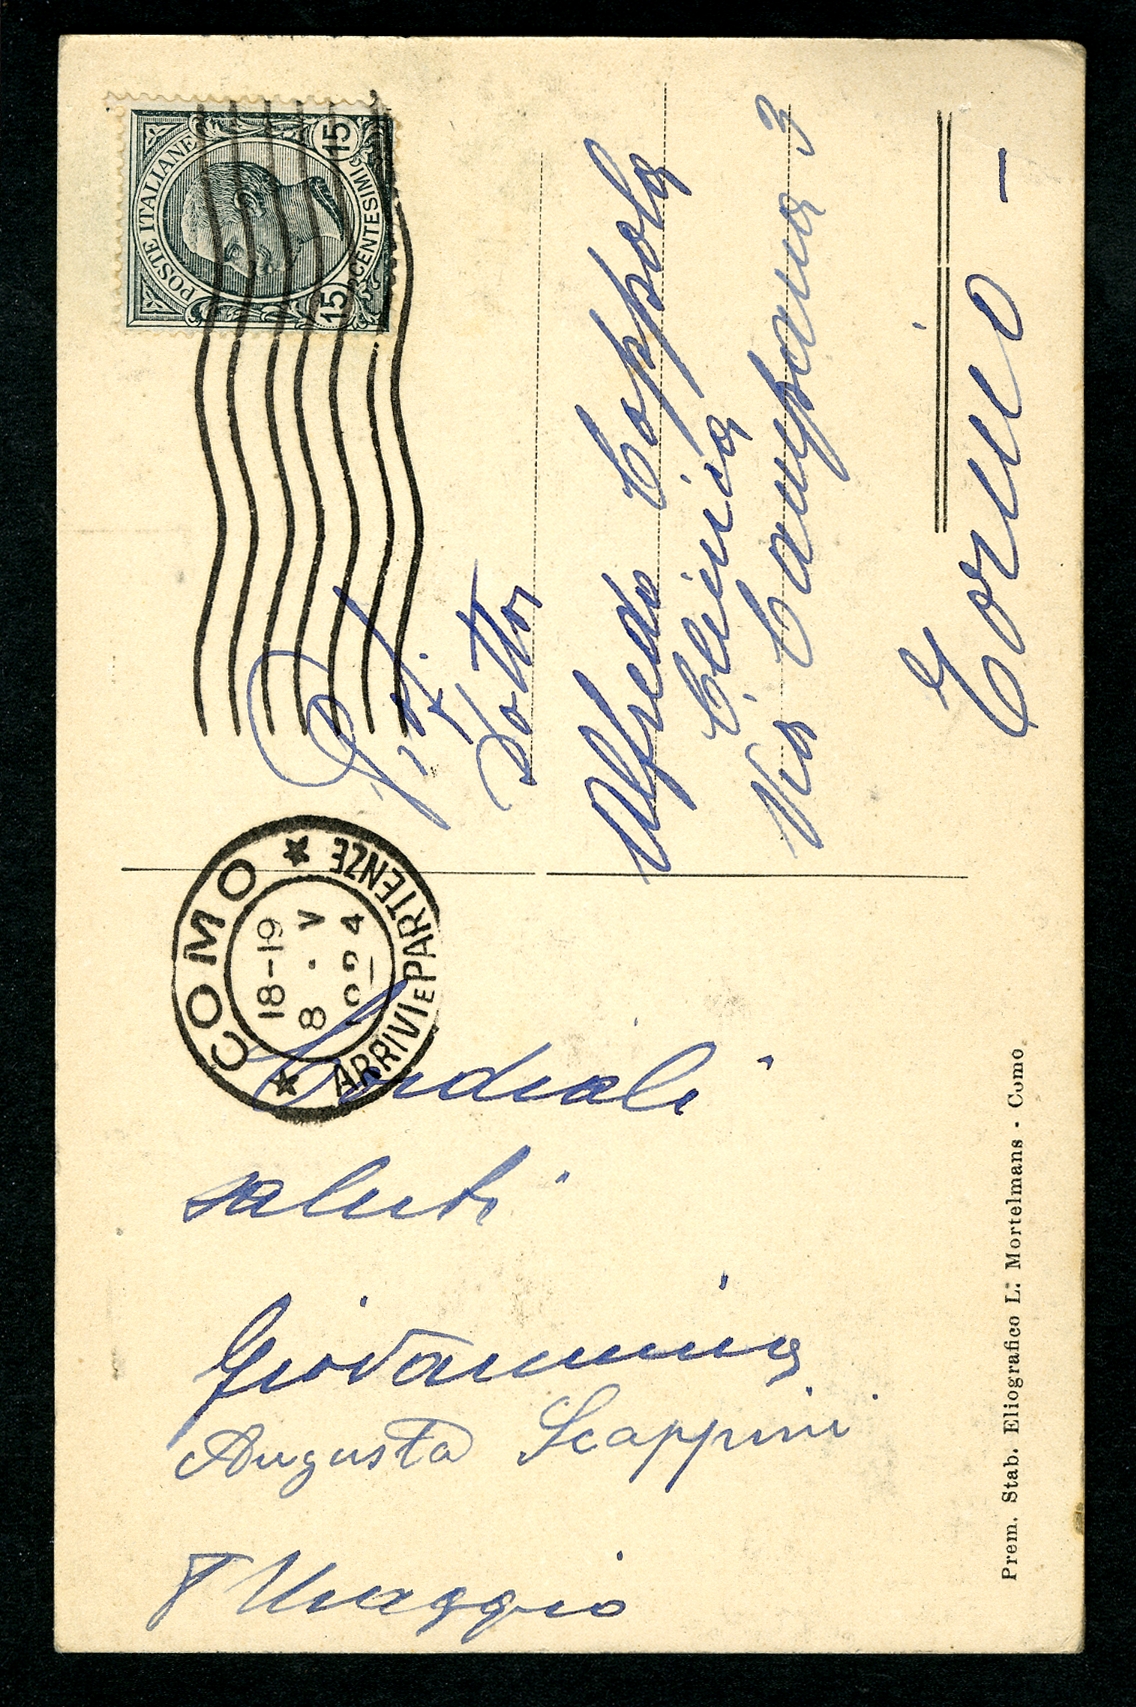 Cordiali
saluti
Giovannina
Augusta Scappini
8 Maggio
Prof.
Dottor
Alfredo Coppola
Clinica
Via Campana 3
Torino -
POSTE ITALIANE
15 CENTESIMI 15
COMO
18-19
8 · V
924
ARRIVI E PARTENZE
Prem. Stab. Eliografico L. Mortelmans - Como